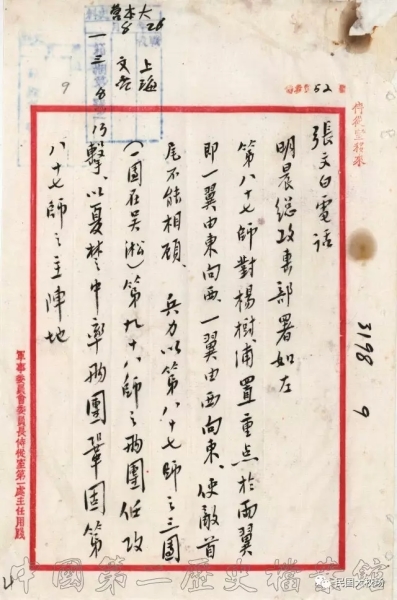 張文白電話
明晨總攻擊部署如左
第八十七師對楊樹浦置重点於兩翼
即一翼由東向西、一翼由西向東、使敵首
尾不能相顧、兵力以第八十七師之三團
(一團在吴淞)第九十八師之兩團任攻
擊、以夏楚中率兩團鞏固第
八十七師之主陣地
52
3198
9
9
上海
軍事委員會委員長侍從室第一處主任用牋
中國第二歷史檔案館
民国大校场